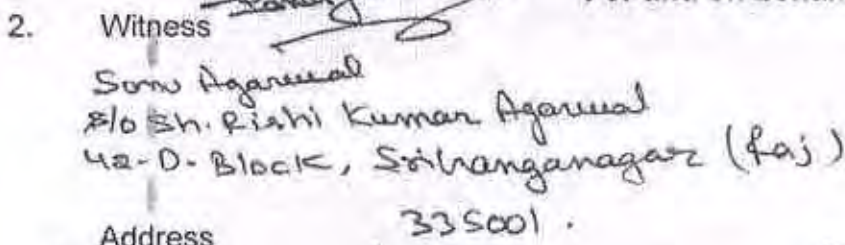 2. Witness
Sonu Agarwal
S/o Sh. Rishi Kumar Agarwal
42-D-Block, Sriganganagar (Raj)
335001.
Address